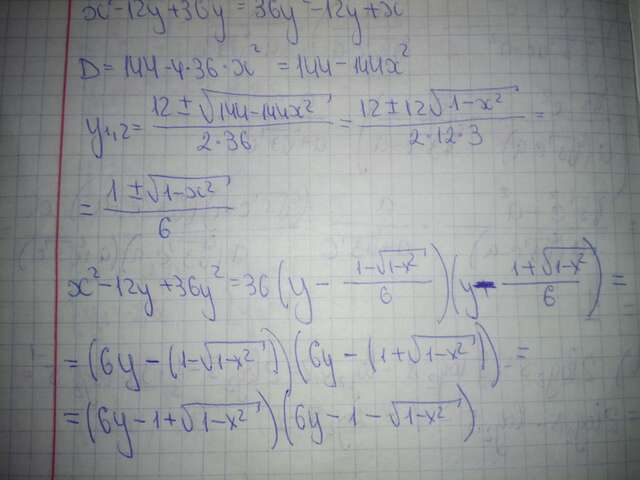 x²-12y+36y² = 36y²-12y+x²
D = 144-4·36·x² = 144-144x²
y₁,₂ = (12 ± √(144-144x²))/(2·36) = (12 ± 12√(1-x²))/(2·12·3) =
= (1 ± √(1-x²))/6
x²-12y+36y² = 36(y - (1-√(1-x²))/6)(y - (1+√(1-x²))/6) =
= (6y-(1-√(1-x²)))(6y-(1+√(1-x²))) =
= (6y-1+√(1-x²))(6y-1-√(1-x²))